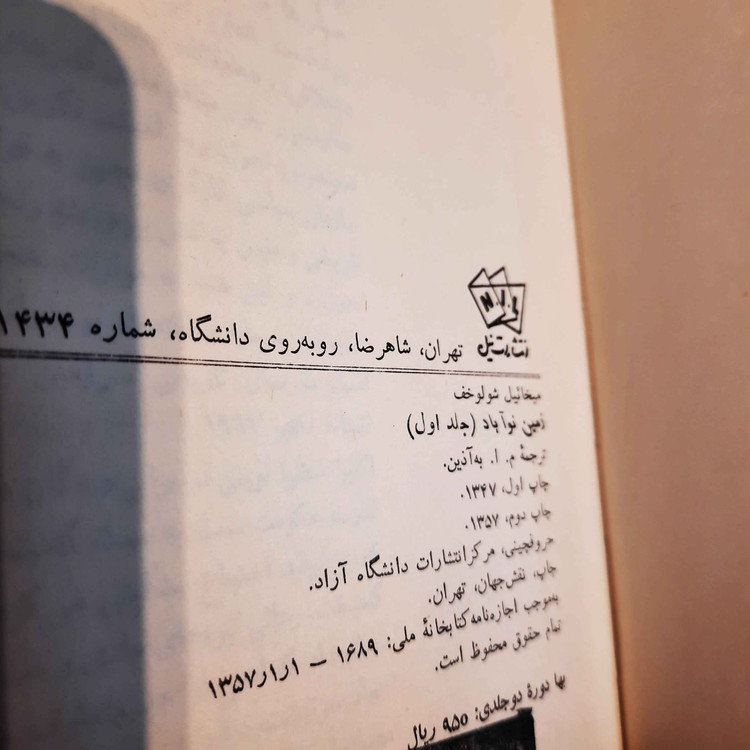 N.I.L
انتشارات نیل
تهران، شاهرضا، روبه‌روی دانشگاه، شماره ۱۴۳۴
میخائیل شولوخف
زمین نوآباد (جلد اول)
ترجمهٔ م. ا. به‌آذین.
چاپ اول، ۱۳۴۷.
چاپ دوم، ۱۳۵۷.
حروفچینی، مرکز انتشارات دانشگاه آزاد.
چاپ، نقش‌جهان، تهران.
به‌موجب اجازه‌نامه کتابخانهٔ ملی: ۱۶۸۹ – ۱ر۱ر۱۳۵۷
تمام حقوق محفوظ است.
بها دورهٔ دوجلدی: ۹۵۰ ریال